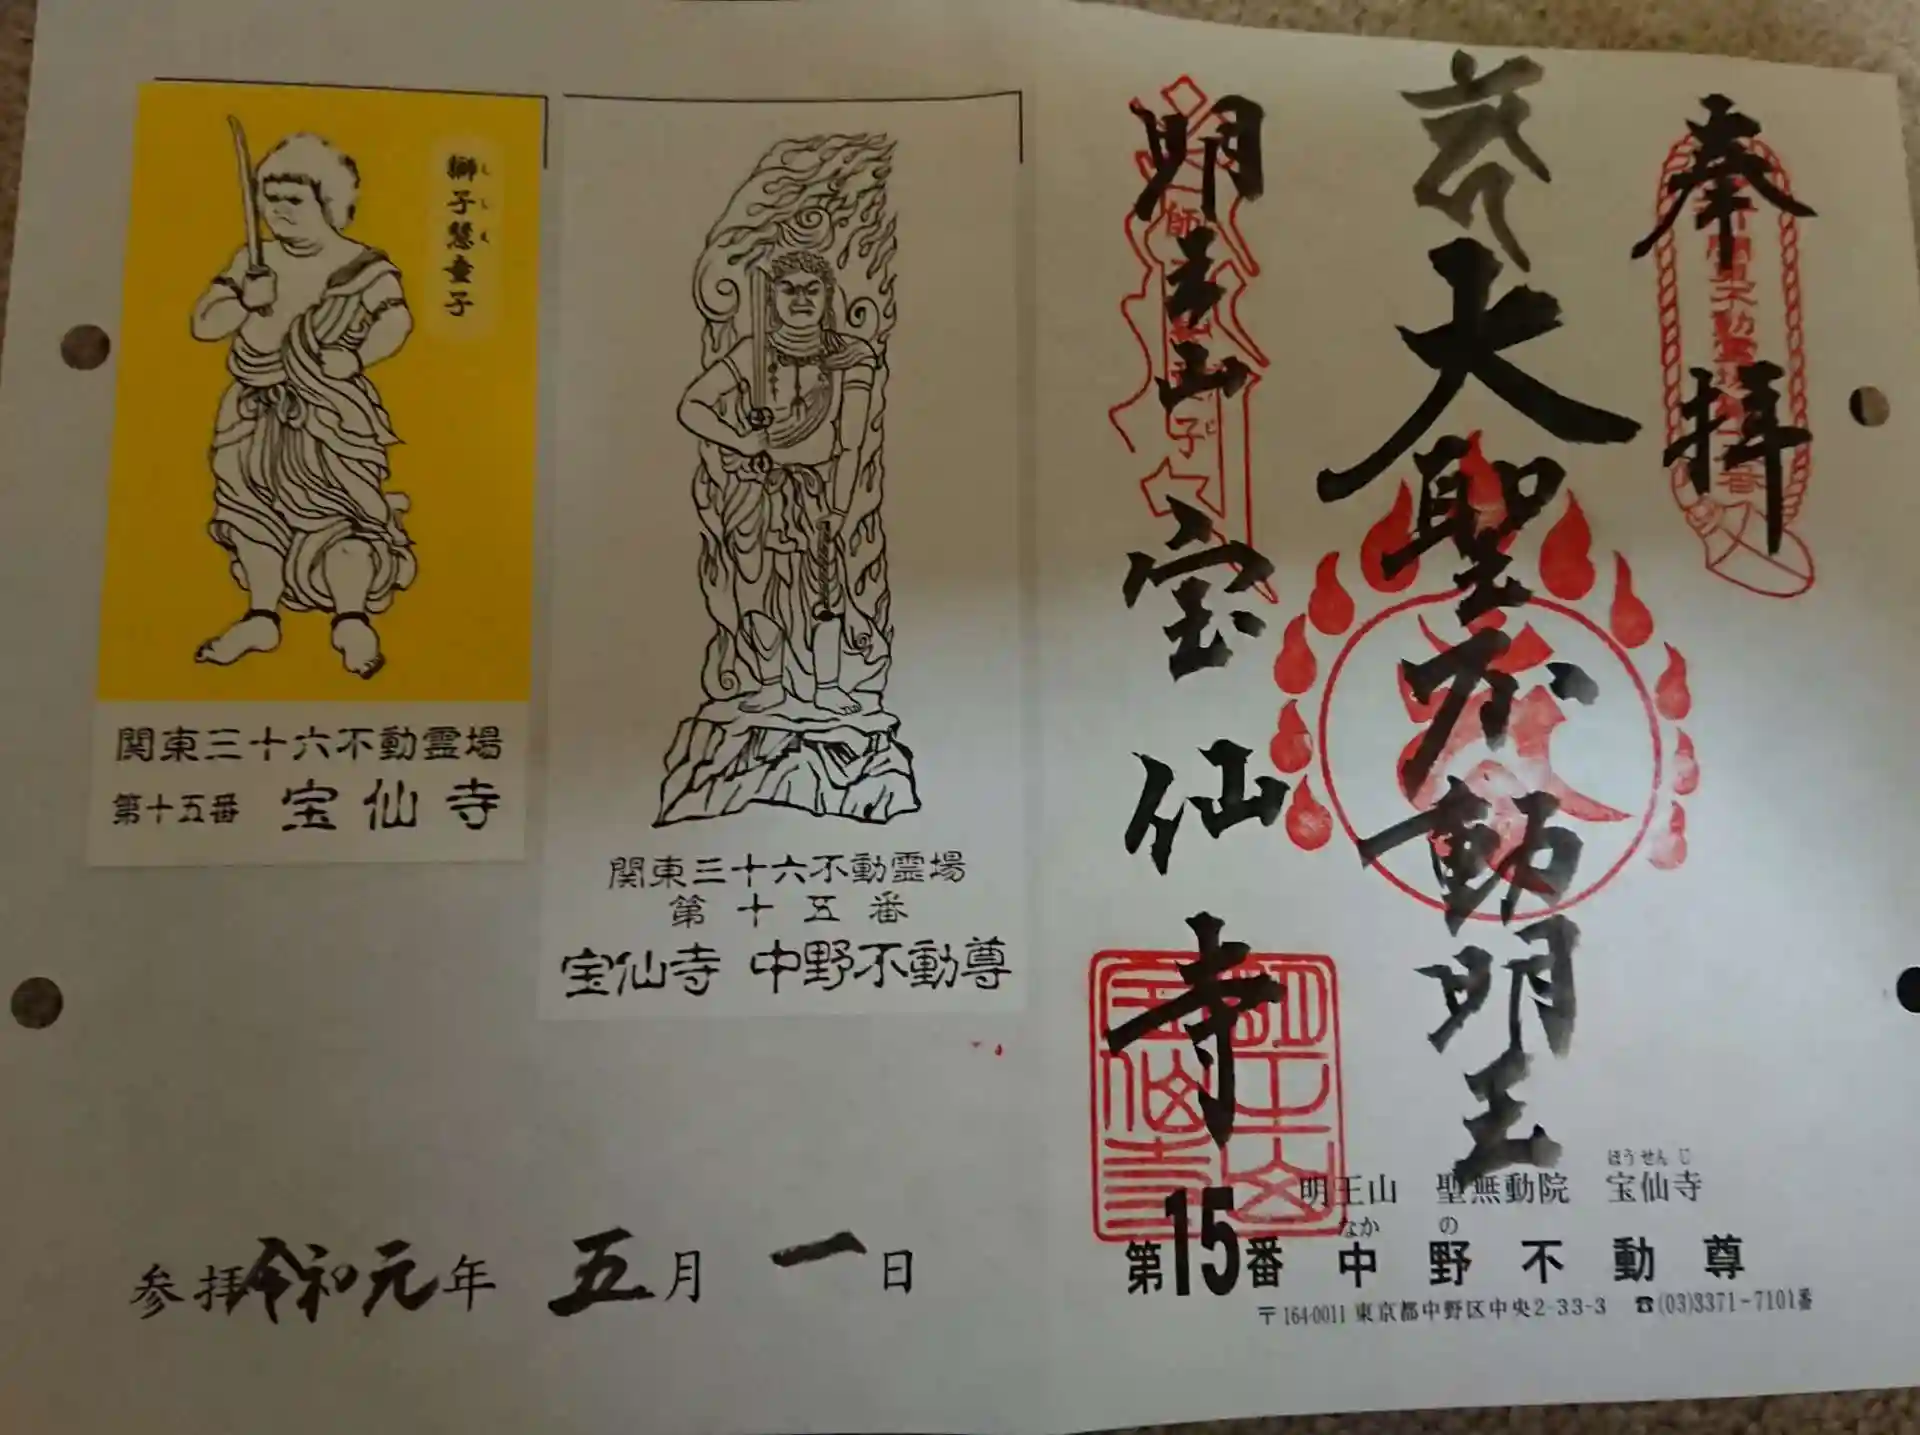 奉拝
大聖不動明王
明王山
宝仙寺
明王山 聖無動院 宝仙寺
ほうせんじ
第15番 中野不動尊
なかの
〒164-0011 東京都中野区中央2-33-3 ☎(03)3371-7101番
関東三十六不動霊場
第十五番
宝仙寺 中野不動尊
獅子慧童子
ししえ
関東三十六不動霊場
第十五番 宝仙寺
参拝令和元年 五月 一日